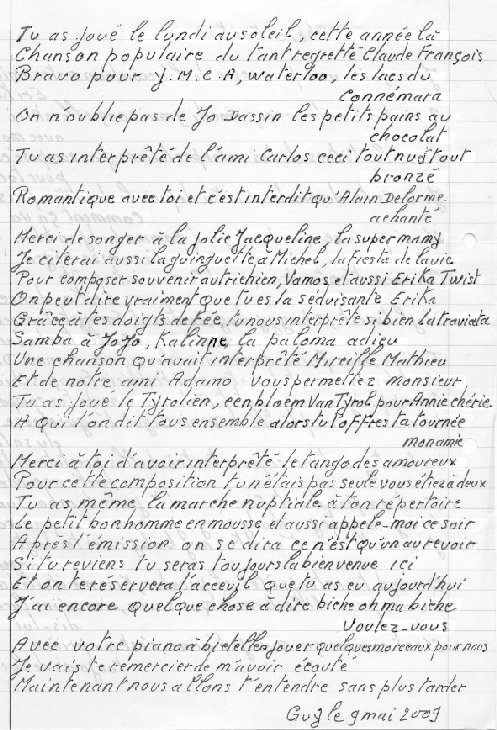 Tu as joué le lundi au soleil, cette année là
Chanson populaire du tant regretté Claude François
Bravo pour Y.M.C.A, Waterloo, les lacs du
Connémara
On n'oublie pas de Jo Dassin les petits pains au
chocolat
Tu as interprêté de l'ami Carlos ceci tout nu & tout
bronzé
Romantique avec toi et c'est interdit qu'Alain Delorme
a chanté
Merci de songer à la jolie Jacqueline, la super mamy
Je citerai aussi la guinguette à Michel, la fiesta de la vie
Pour composer souvenir autrichien, Vamos, et aussi Erika Twist
On peut dire vraiment que tu es la séduisante Erika
Grâce à tes doigts de fée, tu nous interprète si bien la traviata
Samba à JoJo, Kalinne, la paloma adieu
Une chanson qu'avait interprêté Mireille Mathieu
Et de notre ami Adamo vous permettez monsieur
Tu as joué le Tyrolien, een bloem Van Tyrol pour Annie chérie.
A qui l'on dit tous ensemble alors tu l'offres ta tournée
mon amie
Merci à toi d'avoir interprêté le tango des amoureux
Pour cette composition tu n'étais pas seule vous étiez à deux
Tu as même la marche nuptiale à ton répertoire
Le petit bonhomme en mousse, et aussi appele-moi ce soir
Après l'émission on se dira ce n'est qu'un au revoir
Si tu reviens tu seras toujours la bienvenue ici
Et on te réservera l'acceuil que tu as eu aujourd'hui
J'ai encore quelque chose à dire biche oh ma biche
Voulez-vous
Avec votre piano à bretelles jouer quelques morceaux pour nous
Je vais te remercier de m'avoir écouté
Maintenant nous allons t'entendre sans plus tarder
Guy le 9 mai 2009